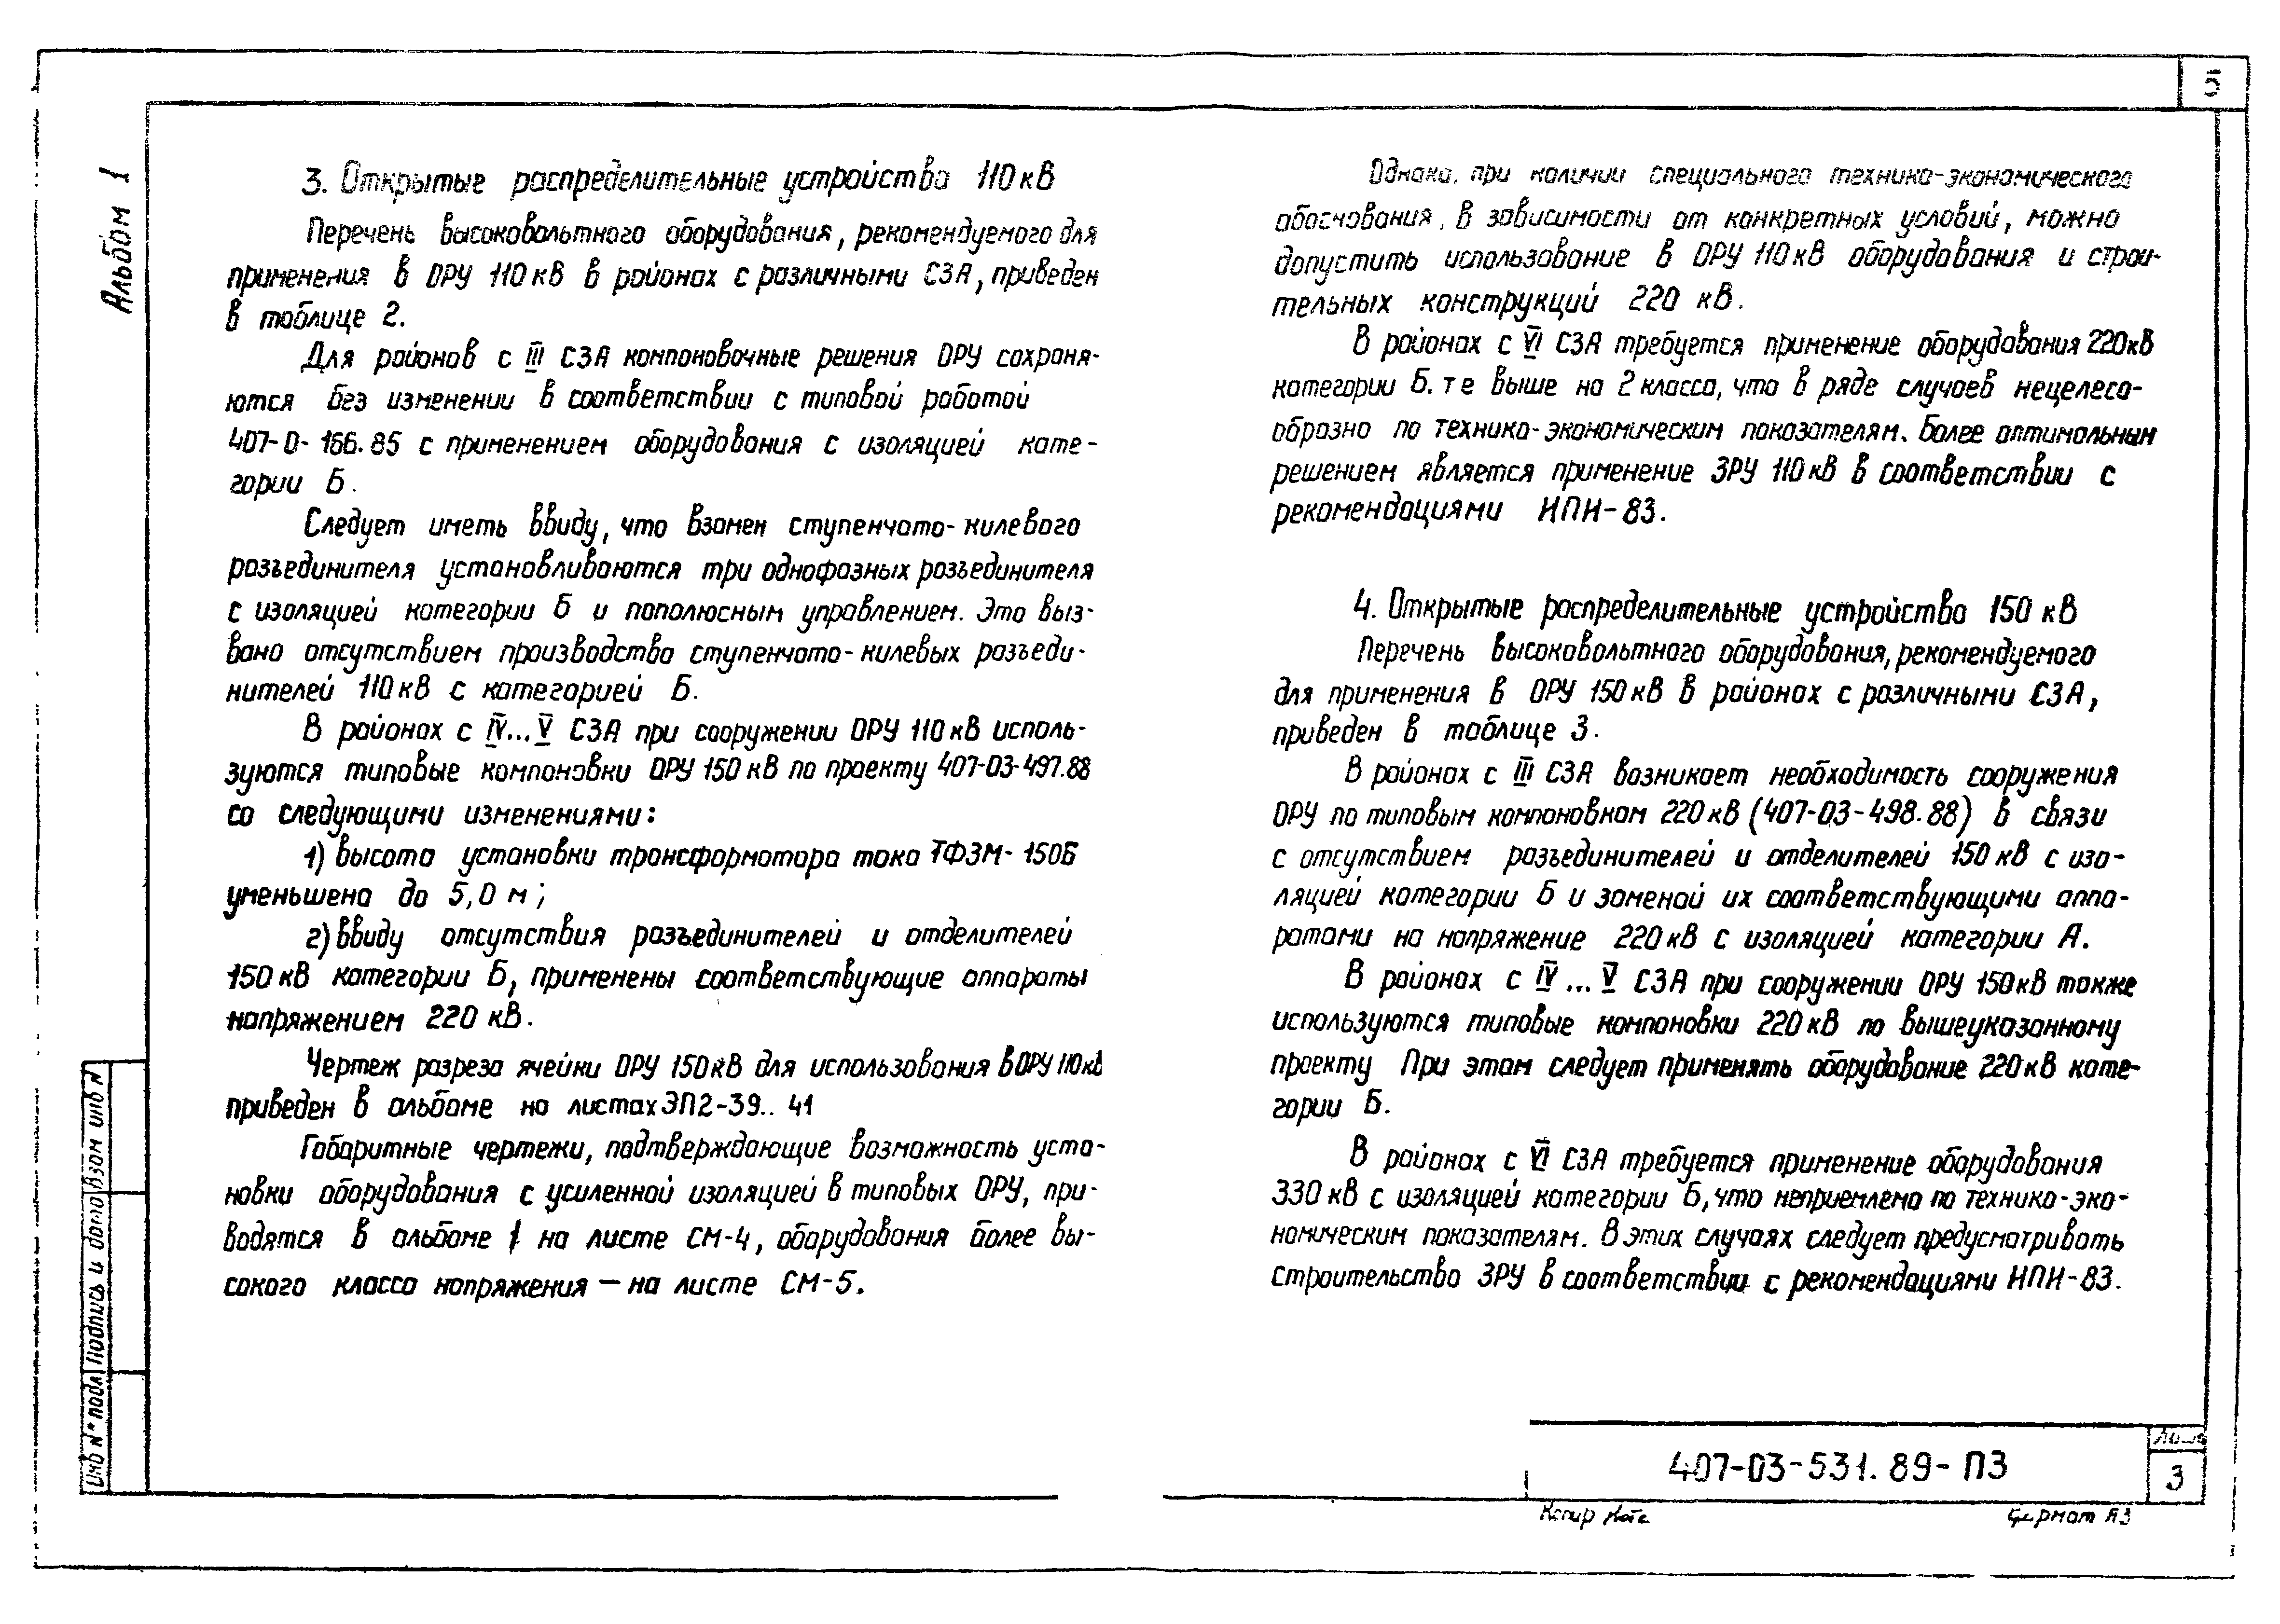 5
Альбом 1
3. Открытые распределительные устройства 110 кВ
Перечень высоковольтного оборудования, рекомендуемого для
применения в ОРУ 110 кВ в районах с различными СЗА, приведен
в таблице 2.
Для районов с III СЗА компоновочные решения ОРУ сохраня-
ются без изменений в соответствии с типовой работой
407-0-166.85 с применением оборудования с изоляцией кате-
гории Б.
Следует иметь ввиду, что взамен ступенчато-килевого
разъединителя устанавливаются три однофазных разъединителя
с изоляцией категории Б и пополюсным управлением. Это выз-
вано отсутствием производства ступенчато-килевых разъеди-
нителей 110 кВ с категорией Б.
В районах с IV...V СЗА при сооружении ОРУ 110 кВ исполь-
зуются типовые компоновки ОРУ 150 кВ по проекту 407-03-497.88
со следующими изменениями:
1) высота установки трансформатора тока ТФЗМ-150Б
уменьшена до 5,0 м;
2) ввиду отсутствия разъединителей и отделителей
150 кВ категории Б, применены соответствующие аппараты
напряжением 220 кВ.
Чертеж разреза ячейки ОРУ 150 кВ для использования в ОРУ 110 кВ
приведен в альбоме на листах ЭП2-39.. 41
Габаритные чертежи, подтверждающие возможность уста-
новки оборудования с усиленной изоляцией в типовых ОРУ, при-
водятся в альбоме 1 на листе СМ-4, оборудования более вы-
сокого класса напряжения — на листе СМ-5.
Однако, при наличии специального технико-экономического
обоснования, в зависимости от конкретных условий, можно
допустить использование в ОРУ 110 кВ оборудования и строи-
тельных конструкций 220 кВ.
В районах с VI СЗА требуется применение оборудования 220 кВ
категории Б. т е выше на 2 класса, что в ряде случаев нецелесо-
образно по технико-экономическим показателям. Более оптимальным
решением является применение ЗРУ 110 кВ в соответствии с
рекомендациями ИПИ-83.
4. Открытые распределительные устройства 150 кВ
Перечень высоковольтного оборудования, рекомендуемого
для применения в ОРУ 150 кВ в районах с различными СЗА,
приведен в таблице 3.
В районах с III СЗА возникает необходимость сооружения
ОРУ по типовым компоновкам 220 кВ (407-03-498.88) в связи
с отсутствием разъединителей и отделителей 150 кВ с изо-
ляцией категории Б и заменой их соответствующими аппа-
ратами на напряжение 220 кВ с изоляцией категории А.
В районах с IV ... V СЗА при сооружении ОРУ 150 кВ также
используются типовые компоновки 220 кВ по вышеуказанному
проекту При этом следует применять оборудование 220 кВ кате-
гории Б.
В районах с VI СЗА требуется применение оборудования
330 кВ с изоляцией категории Б, что неприемлемо по технико-эко-
номическим показателям. В этих случаях следует предусматривать
строительство ЗРУ в соответствии с рекомендациями ИПИ-83.
Инв N° подл
Подпись и дата
Взам инв N
407-03-531.89-ПЗ
Лист
3
Копир
Формат А3